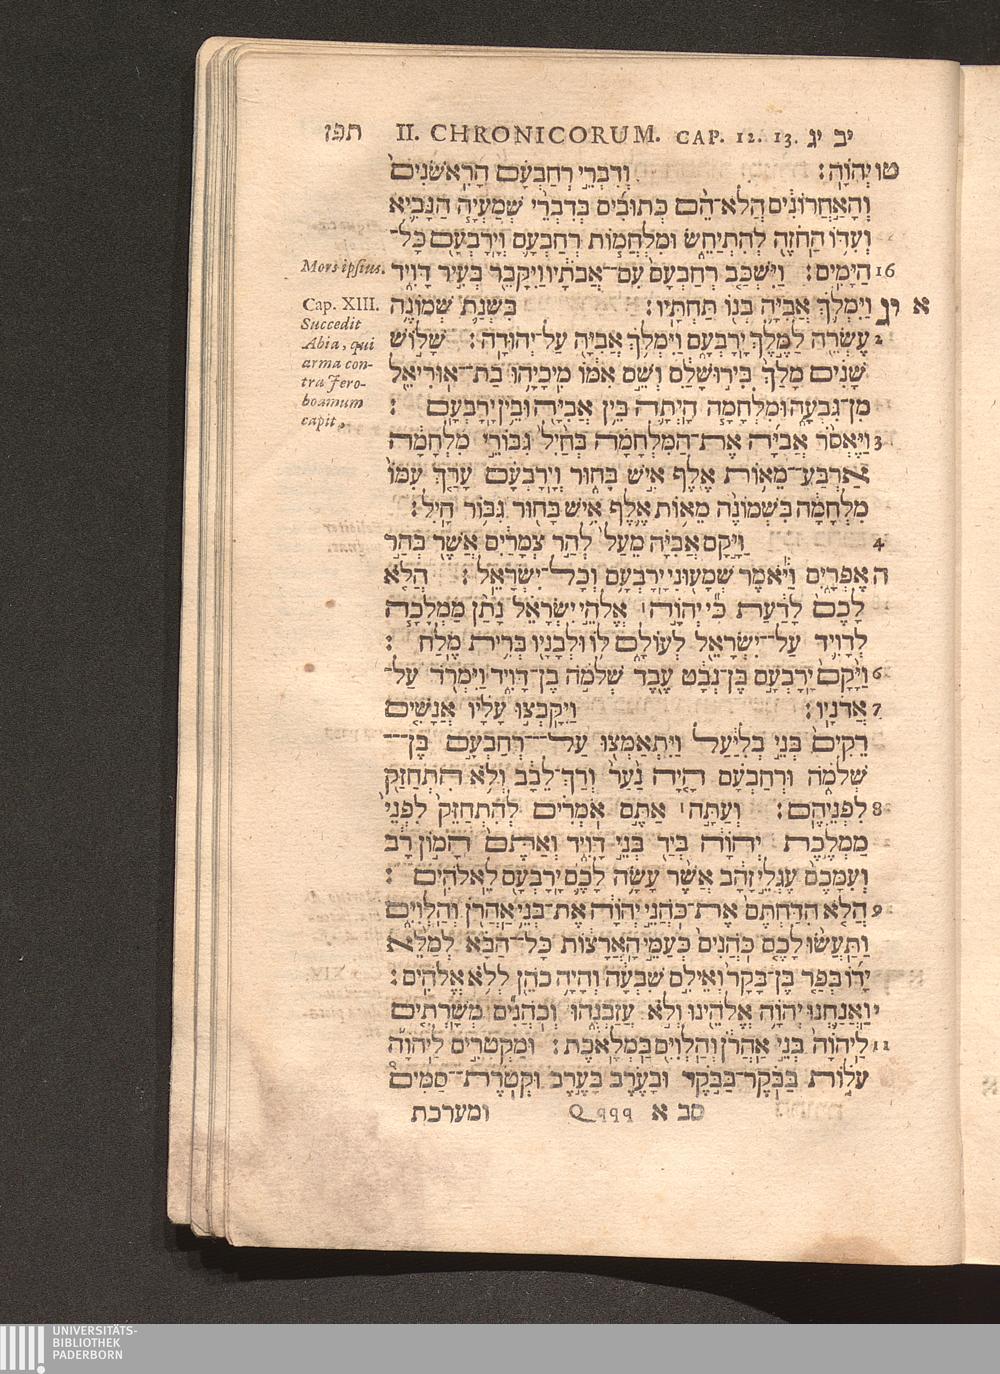 תפז II. CHRONICORUM. CAP. 12. 13. יב יג
טו יְהוָֹה׃ וְדִבְרֵי רְחַבְעָם הָרִאשֹׁנִים
וְהָאַחֲרוֹנִים הֲלֹא־הֵם כְּתוּבִים בְּדִבְרֵי שְׁמַעְיָה הַנָּבִיא
וְעִדּוֹ הַחֹזֶה לְהִתְיַחֵשׂ וּמִלְחֲמוֹת רְחַבְעָם וְיָרָבְעָם כָּל־
הַיָּמִים׃ 16 וַיִּשְׁכַּב רְחַבְעָם עִם־אֲבֹתָיו וַיִּקָּבֵר בְּעִיר דָּוִיד
Mors ipsius.
א יג וַיִּמְלֹךְ אֲבִיָּה בְנוֹ תַּחְתָּיו׃ בִּשְׁנַת שְׁמוֹנֶה
Cap. XIII.
Succedit
Abia, qui
arma con-
tra Jero-
boamum
capit,
2 עֶשְׂרֵה לַמֶּלֶךְ יָרָבְעָם וַיִּמְלֹךְ אֲבִיָּה עַל־יְהוּדָה׃ שָׁלוֹשׁ
שָׁנִים מָלַךְ בִּירוּשָׁלַ͏ִם וְשֵׁם אִמּוֹ מִיכָיָהוּ בַת־אוּרִיאֵל
מִן־גִּבְעָה וּמִלְחָמָה הָיְתָה בֵּין אֲבִיָּה וּבֵין יָרָבְעָם׃
3 וַיֶּאְסֹר אֲבִיָּה אֶת־הַמִּלְחָמָה בְּחַיִל גִּבּוֹרֵי מִלְחָמָה
אַרְבַּע־מֵאוֹת אֶלֶף אִישׁ בָּחוּר וְיָרָבְעָם עָרַךְ עִמּוֹ
מִלְחָמָה בִּשְׁמוֹנֶה מֵאוֹת אֶלֶף אִישׁ בָּחוּר גִּבּוֹר חָיִל׃
4 וַיָּקָם אֲבִיָּה מֵעַל לְהַר צְמָרַיִם אֲשֶׁר בְּהַר
ה אֶפְרָיִם וַיֹּאמֶר שְׁמָעוּנִי יָרָבְעָם וְכָל־יִשְׂרָאֵל׃ הֲלֹא
לָכֶם לָדַעַת כִּי יְהוָֹה׀ אֱלֹהֵי יִשְׂרָאֵל נָתַן מַמְלָכָה
לְדָוִיד עַל־יִשְׂרָאֵל לְעוֹלָם לוֹ וּלְבָנָיו בְּרִית מֶלַח׃
6 וַיָּקָם יָרָבְעָם בֶּן־נְבָט עֶבֶד שְׁלֹמֹה בֶן־דָּוִיד וַיִּמְרֹד עַל־
7 אֲדֹנָיו׃ וַיִּקָּבְצוּ עָלָיו אֲנָשִׁים
רֵקִים בְּנֵי בְלִיַּעַל וַיִּתְאַמְּצוּ עַל־רְחַבְעָם בֶּן־
שְׁלֹמֹה וּרְחַבְעָם הָיָה נַעַר וְרַךְ־לֵבָב וְלֹא הִתְחַזַּק
8 לִפְנֵיהֶם׃ וְעַתָּה׀ אַתֶּם אֹמְרִים לְהִתְחַזֵּק לִפְנֵי
מַמְלֶכֶת יְהוָֹה בְּיַד בְּנֵי דָוִיד וְאַתֶּם הָמוֹן רָב
וְעִמָּכֶם עֶגְלֵי זָהָב אֲשֶׁר עָשָׂה לָכֶם יָרָבְעָם לֵאלֹהִים׃
9 הֲלֹא הִדַּחְתֶּם אֶת־כֹּהֲנֵי יְהוָֹה אֶת־בְּנֵי אַהֲרֹן וְהַלְוִיִּם
וַתַּעֲשׂוּ לָכֶם כֹּהֲנִים כְּעַמֵּי הָאֲרָצוֹת כָּל־הַבָּא לְמַלֵּא
יָדוֹ בְּפַר בֶּן־בָּקָר וְאֵילִם שִׁבְעָה וְהָיָה כֹהֵן לְלֹא אֱלֹהִים׃
י וַאֲנַחְנוּ יְהוָֹה אֱלֹהֵינוּ וְלֹא עֲזַבְנֻהוּ וְכֹהֲנִים מְשָׁרְתִים
11 לַיהוָֹה בְּנֵי אַהֲרֹן וְהַלְוִיִּם בַּמְלָאכֶת׃ וּמַקְטִרִים לַיהוָֹה
עֹלוֹת בַּבֹּקֶר־בַּבֹּקֶר וּבָעֶרֶב בָּעֶרֶב וּקְטֹרֶת־סַמִּים
סב א Qqqq ומערכת
UNIVERSITÄTS-
BIBLIOTHEK
PADERBORN